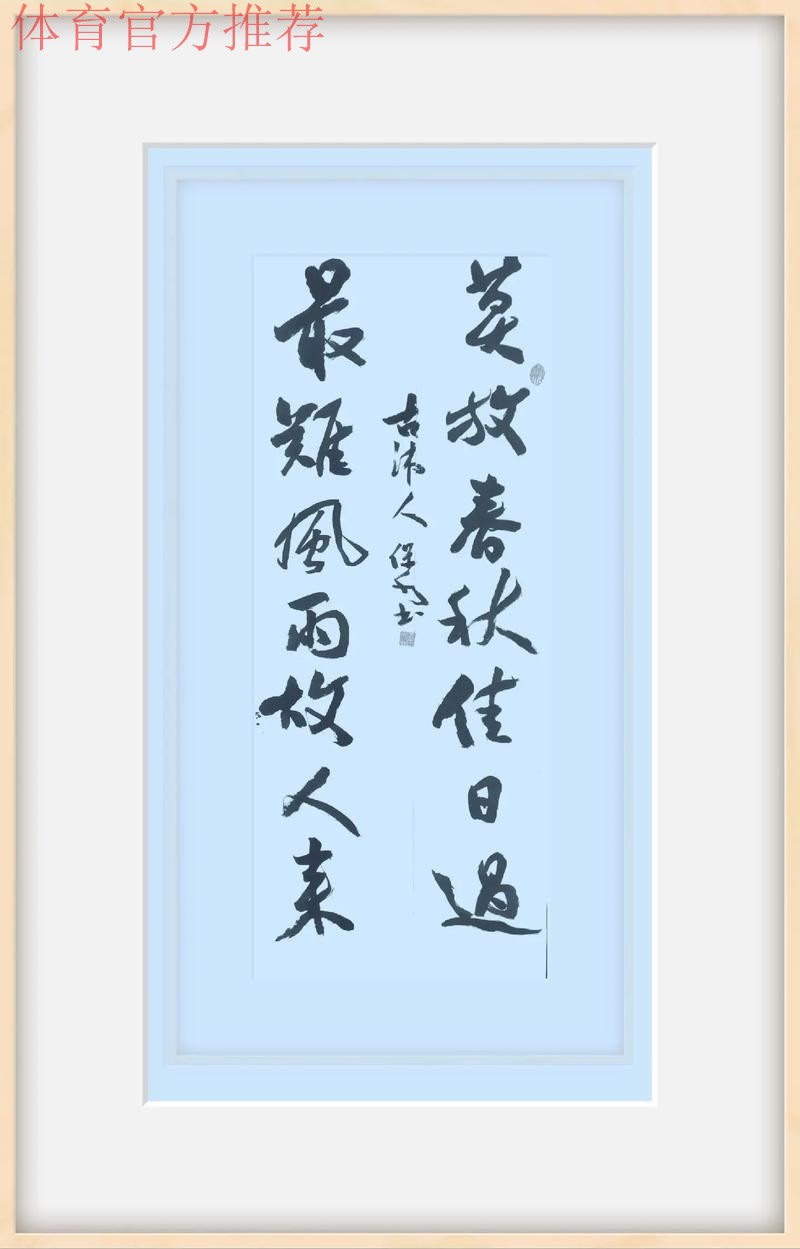 体育官方推荐
莫放春秋佳日過
最難風雨故人来
古沛人保書